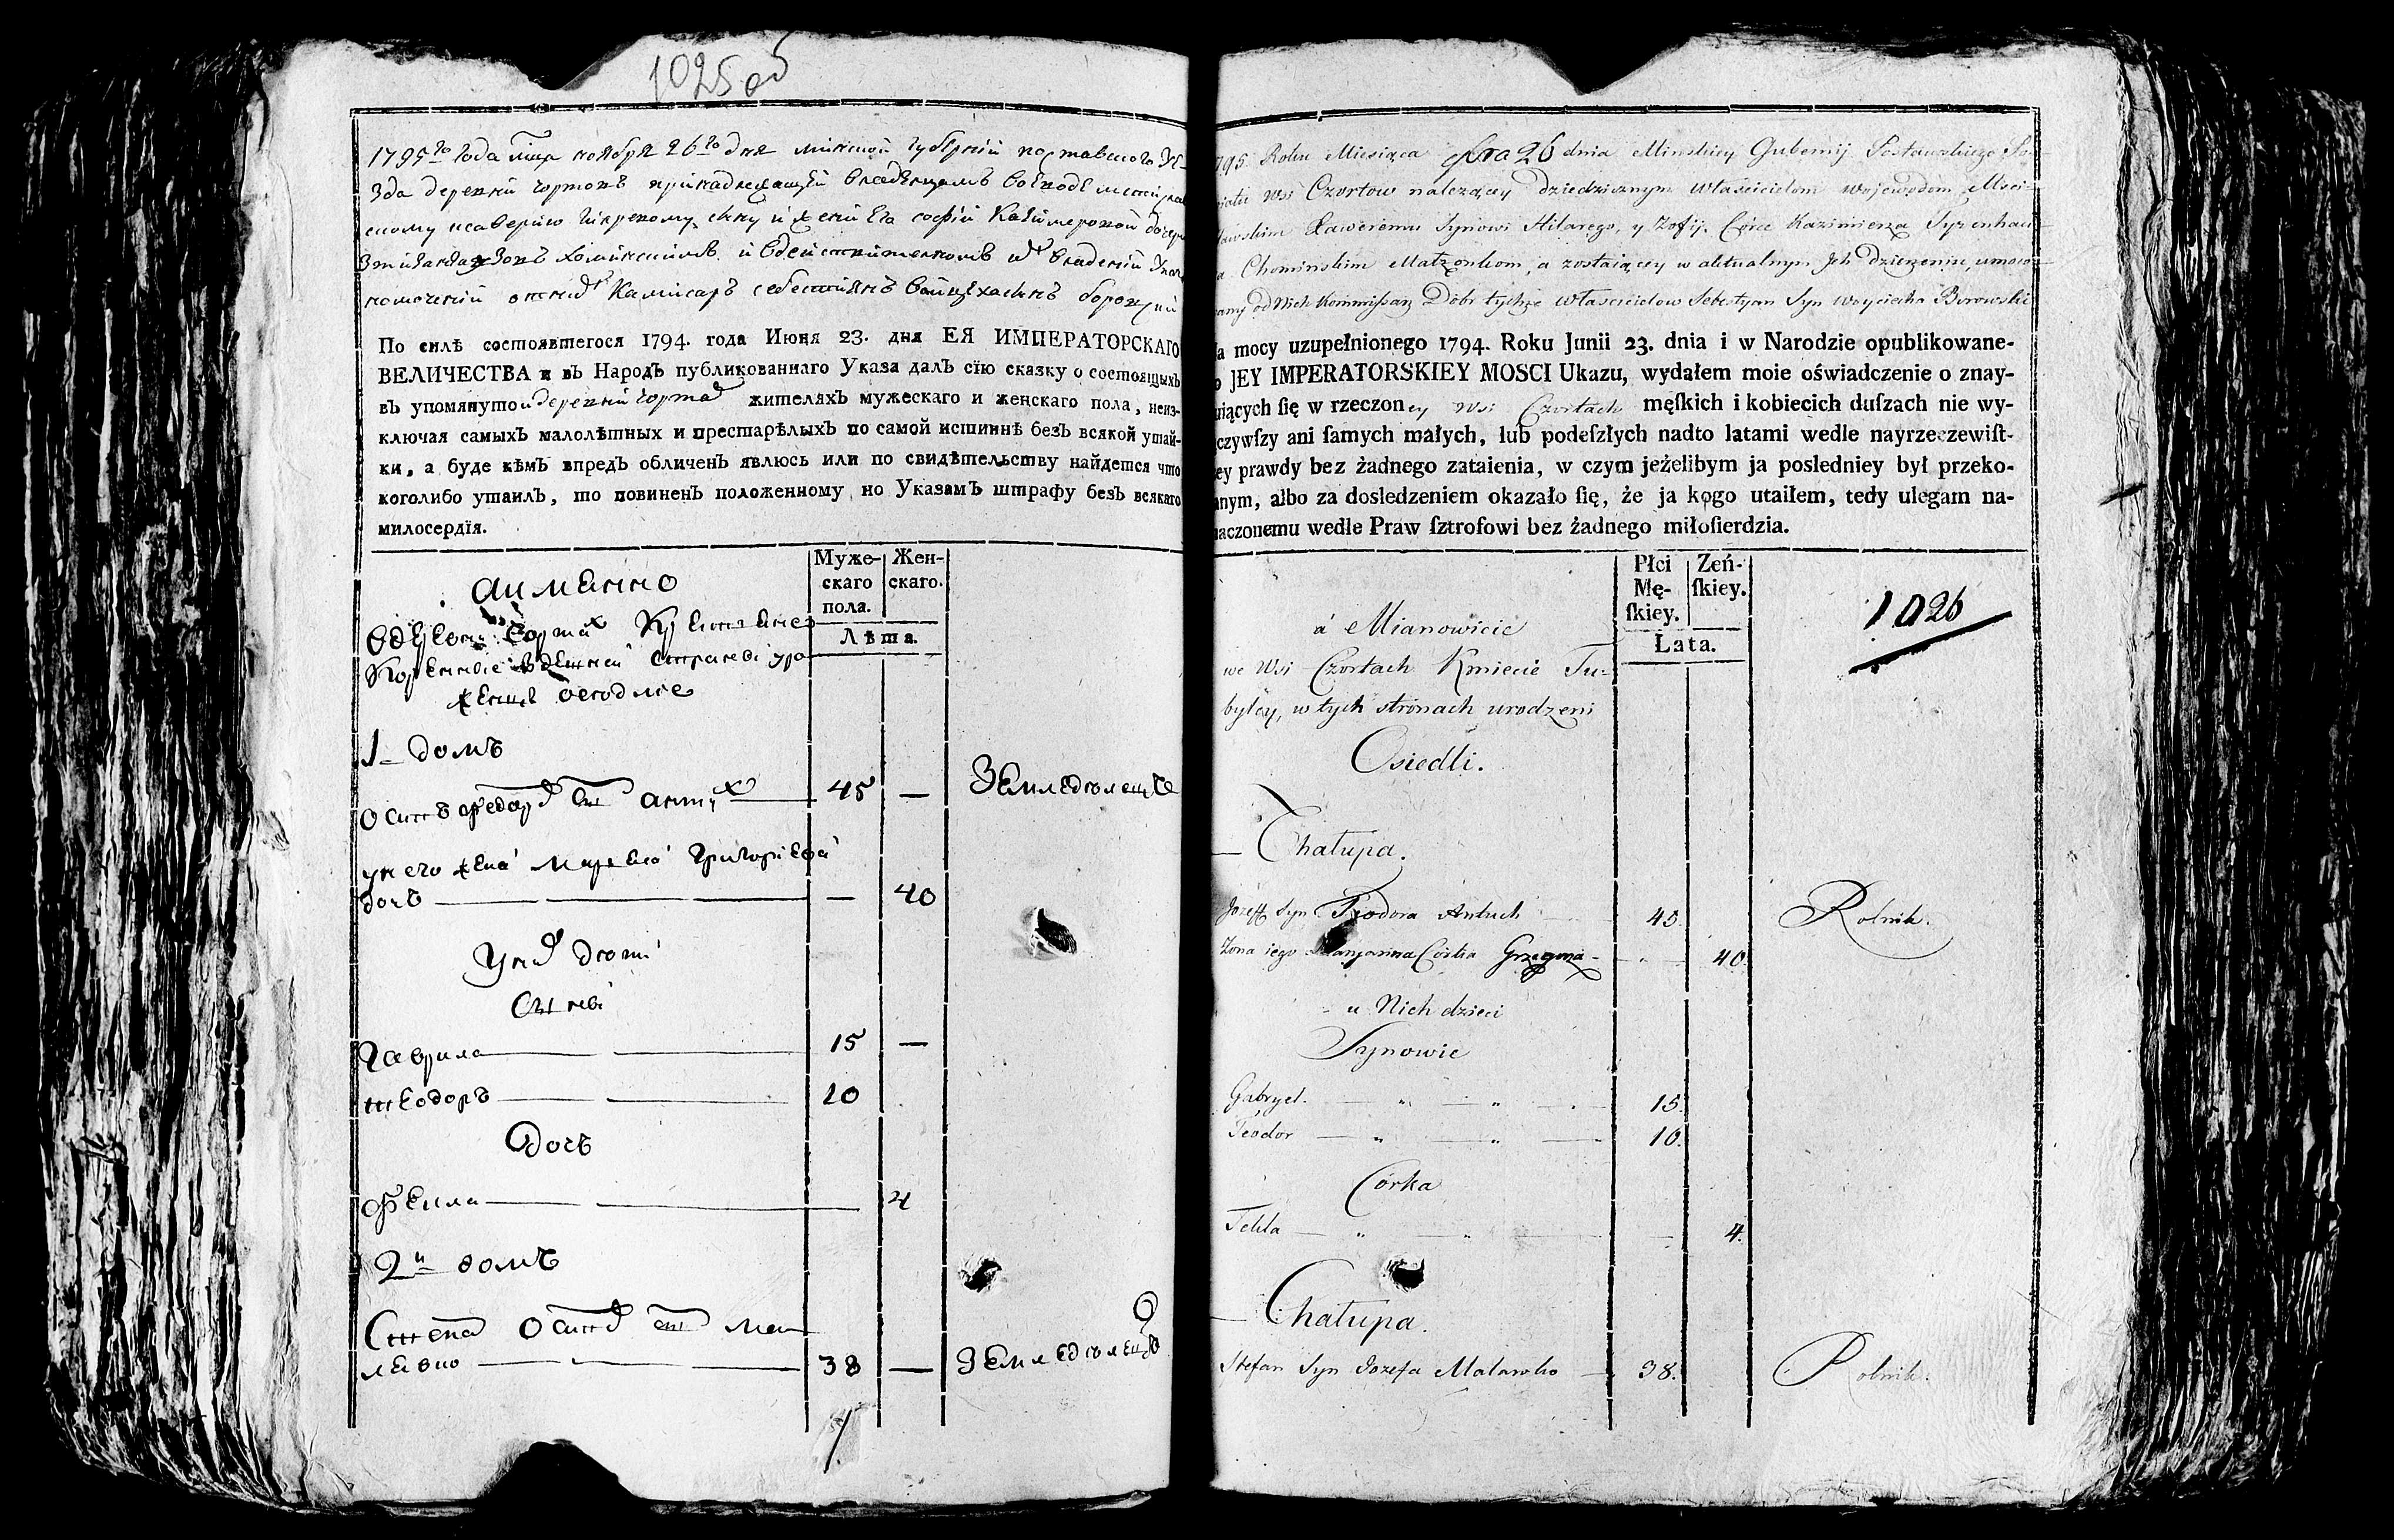 1025 об
1795го года мца ноября 26го дня минской губернии поставского уе-
зда деревни чортовъ принадлежащей владельцамъ воеводе
скому ксаверию гилярому сыну и жени Его софии Казимеровой дочери
Хоминскимъ и вдействителномъ их владении
помочений от них Камисаръ себестиянъ войцехасынъ боровский
По силѣ состоявшегося 1794. года Июня 23. дня ЕЯ ИМПЕРАТОРСКАГО
ВЕЛИЧЕСТВА и въ Народъ публикованнаго Указа далъ сїю сказку о состоящыхъ
въ упомянутой деревни чортах жителяхъ мужескаго и женскаго пола, неиз-
ключая самыхъ малолѣтныхъ и престарѣлыхъ по самой истиннѣ безъ всякой утай-
ки, а буде кѣмъ впредъ обличенъ явлюсь или по свидѣтельству найдется что
коголибо утаилъ, то повиненъ положенному по Указамъ штрафу безъ всякаго
милосердїя.
Муже-скаго пола. Жен-скаго.
Лѣта.
аимянно
вдеревни Чортах Крестяне
Коренные вздешней стороне уро
женцы оседлие
1 домъ
Осипъ федоров сын антух 45 — Землѣделецъ
унего жена Марьяна Григорьева
дочь — 40
Уних дети
Сыневе
Гаврила 15 —
теодоръ 10
Дочь
Фекла 4
2й домъ
Степан Осипов сын мал
левко 38 — Землѣделецъ
1795 Roku Miesiąca 9bra 26 dnia Minskiey Gubernij Postawskiego Po-
wiatu Wsi Czortow należącey dziedzicznym właścicielom Wojewodom Msci-
sławskim Xaweremu Synowi Hilarego, y Zofij Córce Kazimierza Syzenhau-
za Chominskim Małżonkom, a zostaiącey w aktualnym Jch Dzierżeniu, umoco-
wany od Nich Kommissarz Dóbr tychże właścicielow Sebestyan Syn Woyciecha Borowski
Na mocy uzupełnionego 1794. Roku Junii 23. dnia i w Narodzie opublikowane-
go JEY IMPERATORSKIEY MOSCI Ukazu, wydałem moie oświadczenie o znay-
duiących ſię w rzeczoney wsi Czortach męſkich i kobiecich duſzach nie wy-
łączywſzy ani ſamych małych, lub podeſzłych nadto latami wedle nayrzeczewiſt-
szey prawdy bez żadnego zataienia, w czym jeżelibym ja posledniey był przeko-
nanym, albo za dosledzeniem okazało ſię, że ja kogo utaiłem, tedy ulegam na-
znaczonemu wedle Praw ſztrofowi bez żadnego miłoſierdzia.
Płci Mę-ſkiey. Zeń-ſkiey.
Lata.
1026
á Mianowicie
we Wsi Czortach Kmiecie Tu-
bylcy, w tych stronach urodzeni
Osiedli.
Chałupa.
Jozeff Syn Teodora Antuch 45. Rolnik.
Zona iego Marjanna Córka Grzegorza 40.
u Nich dzieci
Synowie
Gabryel. 15.
Teodor 10.
Córka
Tekla 4.
Chałupa.
Stefan Syn Jozefa Malawko 38. Rolnik.